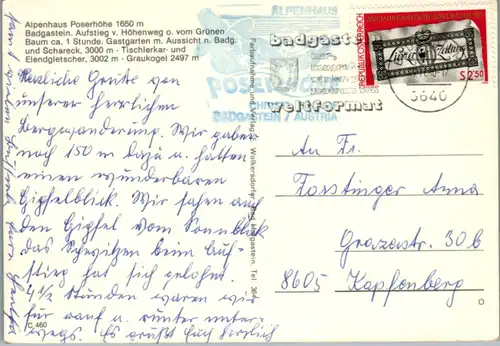 Alpenhaus Poserhöhe 1650 m
Badgastein. Aufstieg v. Höhenweg o. vom Grünen
Baum ca. 1 Stunde. Gastgarten m. Aussicht n. Badg.
und Schareck, 3000 m - Tischlerkar- und
Elendgletscher, 3002 m - Graukogel 2497 m
Herzliche Grüße von
unserer herrlichen
Bergwanderung. Wir gaben
noch 150 m dazu u. hatten
einen wunderbaren
Gipfelblick. Wir sahen auch
den Gipfel vom Sonnblick
das Schwitzen beim Auf-
stieg hat sich gelohnt.
4 1/2 Stunden waren wir
für rauf u. runter unter-
wegs. Es grüßt Euch herzlich
C 460
ALPENHAUS
BADGASTEIN / AUSTRIA
badgastein
weltformat
REPUBLIK ÖSTERREICH
S 2.50
5640
An Fr.
Forstinger Anna
Grazerstr. 30 b
8605 Kapfenberg